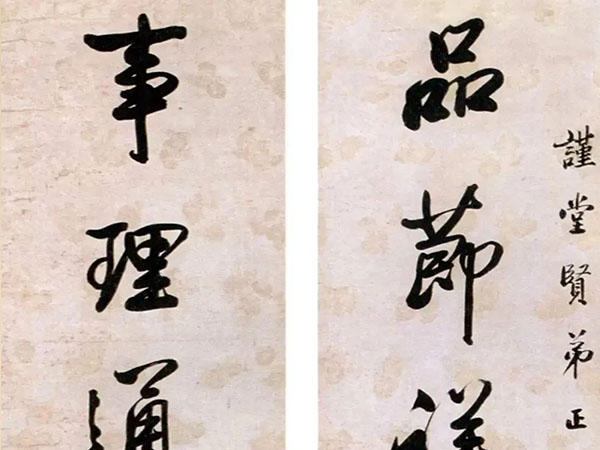 謹堂賢弟正
品節詳
事理通